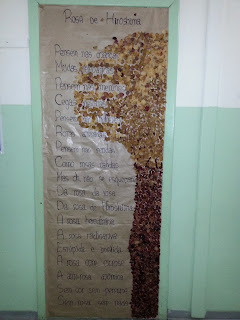 Rosa de Hiroshima
Pensem nas crianças
Mudas telepáticas
Pensem nas meninas
Cegas inexatas
Pensem nas mulheres
Rotas alteradas
Pensem nas feridas
Como rosas cálidas
Mas oh não se esqueçam
Da rosa da rosa
Da rosa de Hiroshima
A rosa hereditária
A rosa radioativa
Estúpida e inválida
A rosa com cirrose
A anti-rosa atômica
Sem cor sem perfume
Sem rosa sem nada